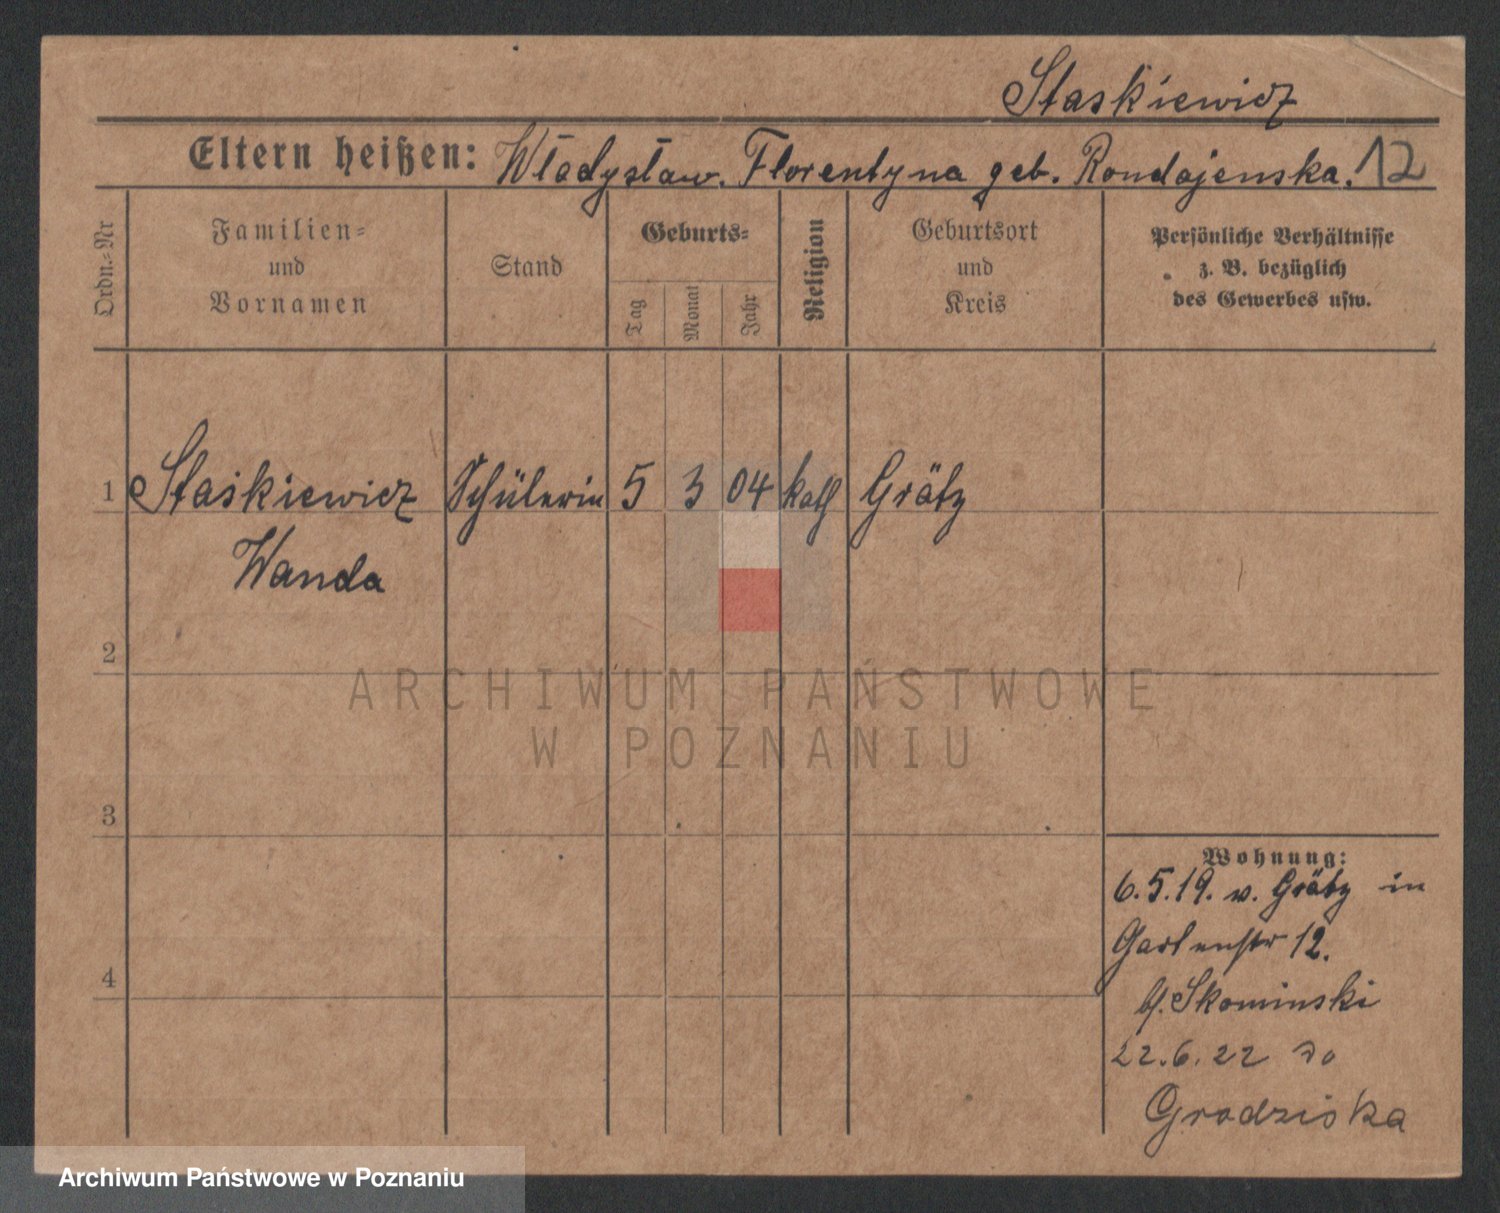 Staskiewicz
Eltern heißen: Władysław. Florentyna geb. Rondojenska. 12
Ordn.-Nr
Familien-
und
Vornamen
Stand
Geburts-
Tag
Monat
Jahr
Religion
Geburtsort
und
Kreis
Persönliche Verhältnisse
z. B. bezüglich
des Gewerbes usw.
1 Staśkiewicz Schülerin 5 3 04 kath Grätz
Wanda
2
3
4
Wohnung:
6.5.19. v. Grätz in
Gartenstr 12.
b/. Skominski
22.6.22 do
Grodziska
ARCHIWUM PAŃSTWOWE
W POZNANIU
Archiwum Państwowe w Poznaniu